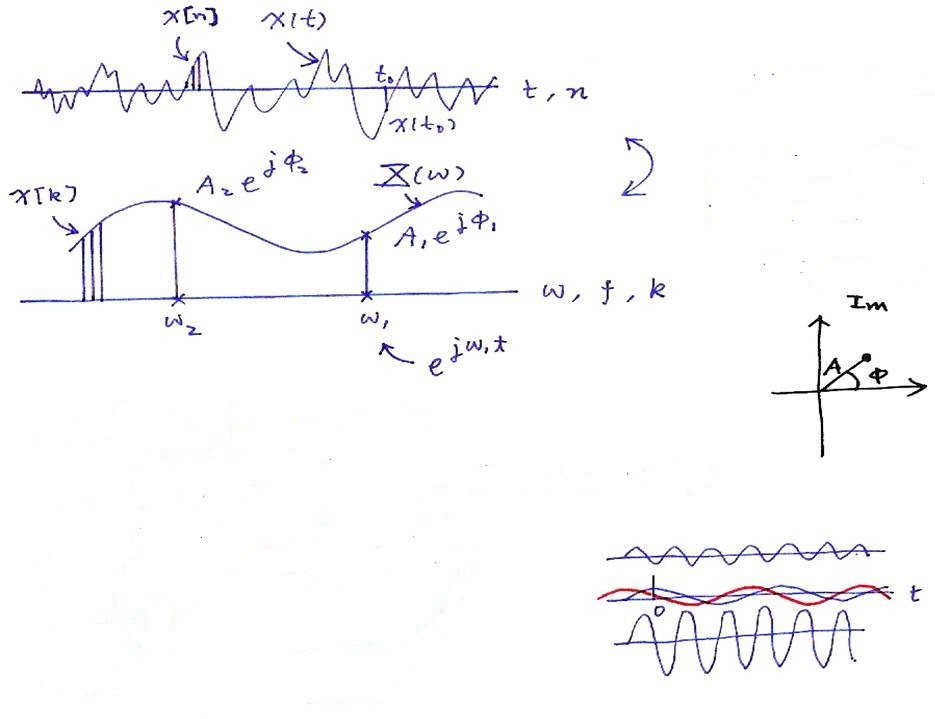 x[n] x(t)
t₀
t, n
x(t₀)
A₂e^{jΦ₂}
X(ω)
x[k]
A₁e^{jΦ₁}
ω, f, k
ω₂
ω₁
e^{jω₁t}
Im
A
Φ
t
0